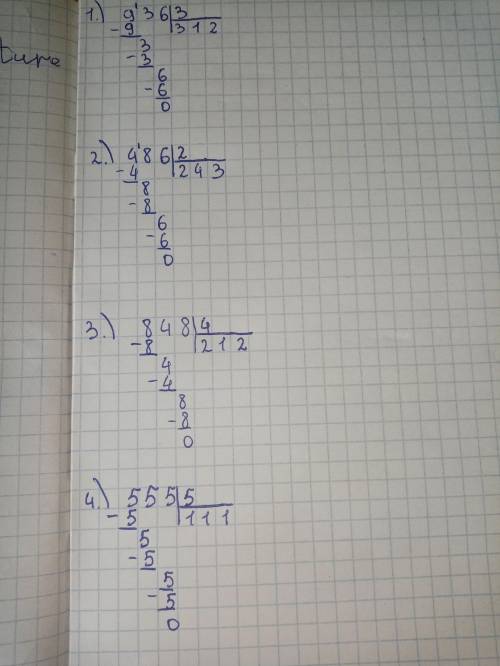 1.) 9'36|3
-9 312
3
-3
6
-6
0
2.) 4'86|2
-4 243
8
-8
6
-6
0
3.) 848|4
-8 212
4
-4
8
-8
0
4.) 555|5
-5 111
5
-5
5
-5
0